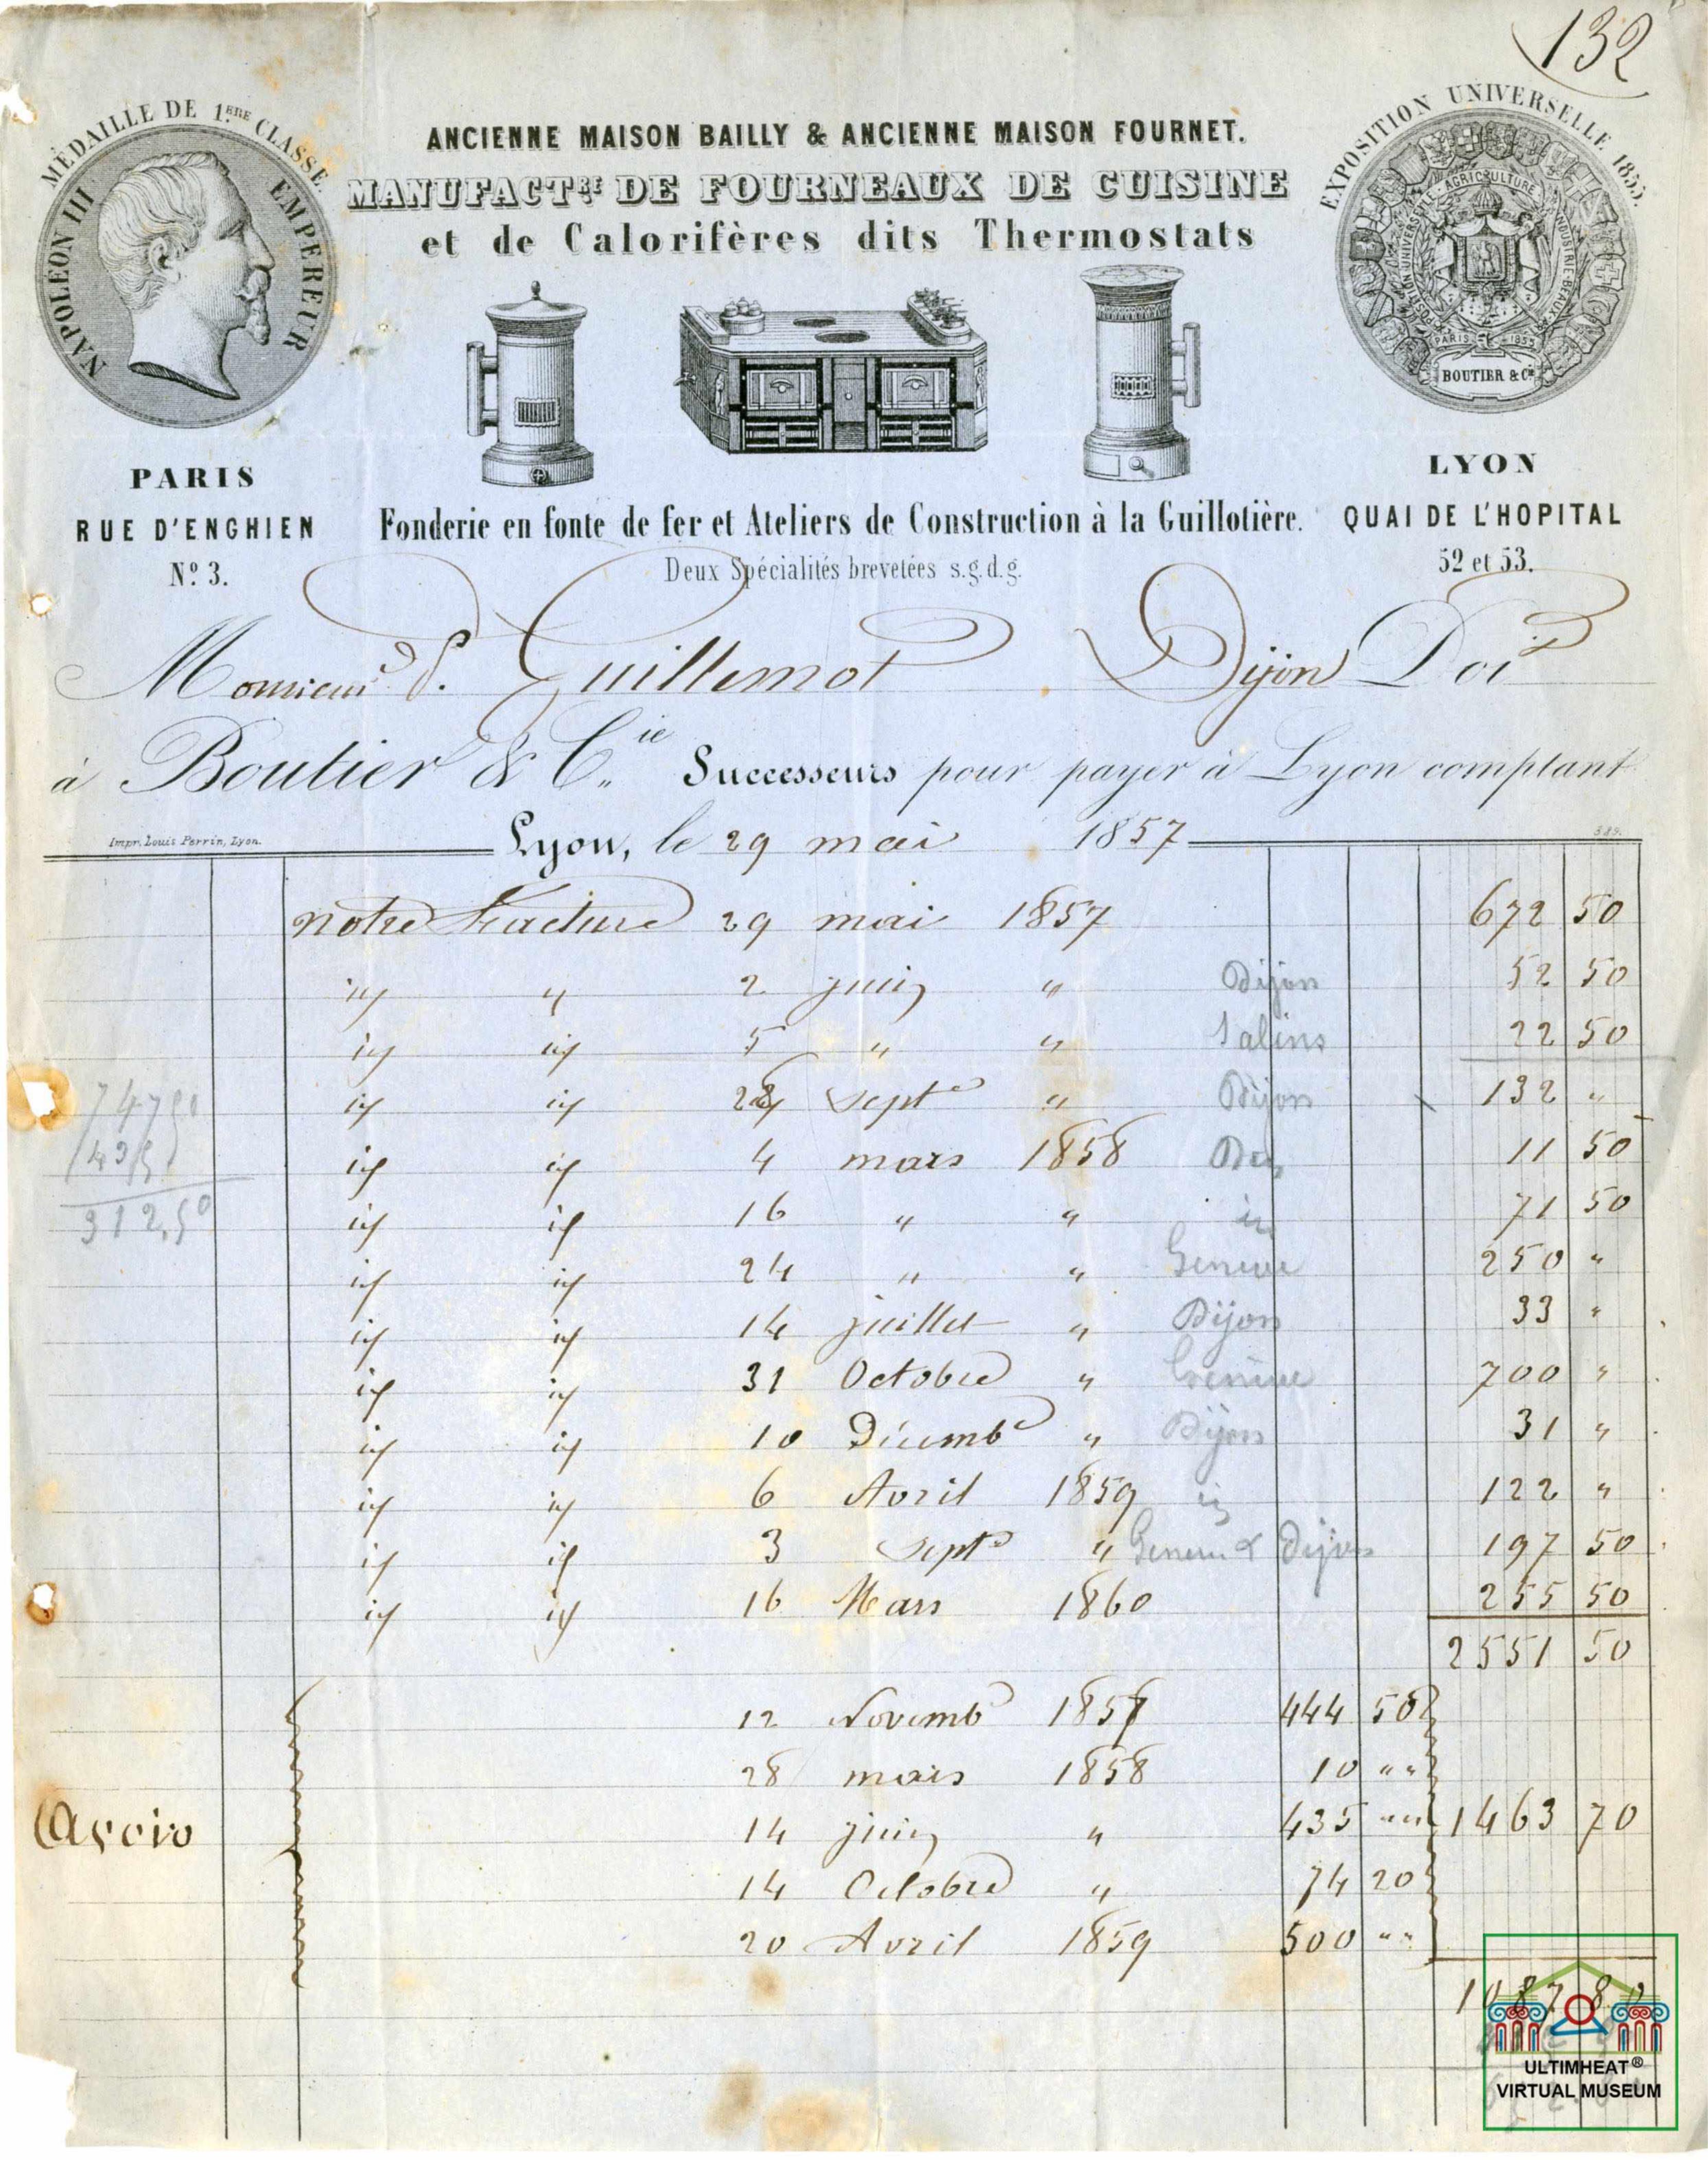 132
MÉDAILLE DE 1.ÈRE CLASSE.
NAPOLÉON III EMPEREUR
EXPOSITION UNIVERSELLE 1855.
EXPOSITION UNIVERSELLE AGRICULTURE INDUSTRIE BEAUX
PARIS 1855
BOUTIER & Cie
ANCIENNE MAISON BAILLY & ANCIENNE MAISON FOURNET.
MANUFACTRE DE FOURNEAUX DE CUISINE
et de Calorifères dits Thermostats
PARIS
RUE D'ENGHIEN
No 3.
Fonderie en fonte de fer et Ateliers de Construction à la Guillotière.
Deux Spécialités brevetées s.g.d.g.
LYON
QUAI DE L'HOPITAL
52 et 53.
Monsieur P. Guillemot Dijon Doit
à Boutier & Cie Successeurs pour payer à Lyon comptant
Impr. Louis Perrin, Lyon.
Lyon, le 29 mai 1857
389.
notre Facture 29 mai 1857 672 50
id " 2 juin " Dijon 52 50
id id 5 " " Salins 22 50
id id 28 septe " Dijon 132 "
id id 4 mars 1858 11 50
id id 16 " " id 71 50
id id 24 " " Genève 250 "
id id 14 juillet " Dijon 33 "
id id 31 Octobre " Genève 700 "
id id 10 Décembe " Dijon 31 "
id id 6 Avril 1859 id 122 "
id id 3 septe " Genève & Dijon 197 50
id id 16 Mars 1860 255 50
2551 50
747 50
435
312.50
12 Novembe 1857 444 50
28 mars 1858 10 " "
Avoir 14 juin " 435 " " 1463 70
14 Octobre " 74 20
20 Avril 1859 500 " "
1087 80
ULTIMHEAT®
VIRTUAL MUSEUM